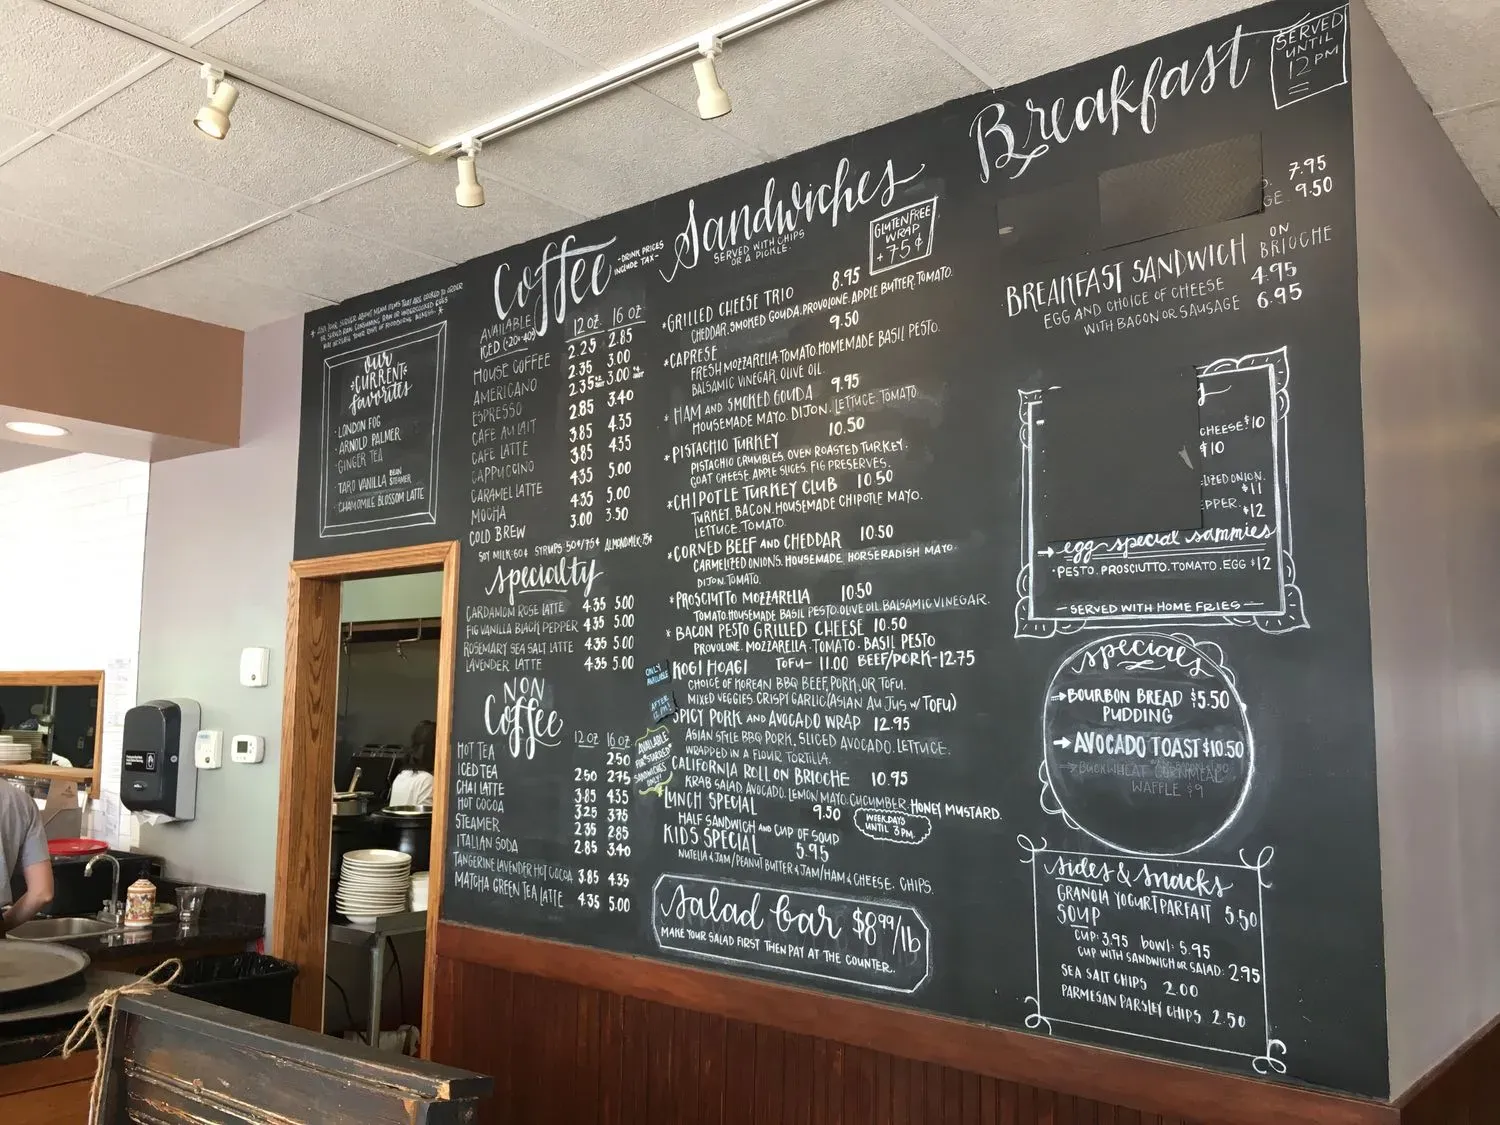 * ASK YOUR SERVER ABOUT MENU ITEMS THAT ARE COOKED TO ORDER
OR SERVED RAW. CONSUMING RAW OR UNDERCOOKED EGGS
MAY INCREASE YOUR RISK OF FOODBORNE ILLNESS. *
our
*CURRENT*
favorites
· LONDON FOG
· ARNOLD PALMER
· GINGER TEA
· TARO VANILLA BEAN STEAMER
· CHAMOMILE BLOSSOM LATTE
Coffee
-DRINK PRICES
INCLUDE TAX-
AVAILABLE
ICED (+20¢-40¢) 12 oz 16 oz
HOUSE COFFEE 2.25 2.85
AMERICANO 2.35 3.00
ESPRESSO 2.35 3.00
CAFE AU LAIT 2.85 3.40
CAFE LATTE 3.85 4.35
CAPPUCCINO 3.85 4.35
CARAMEL LATTE 4.35 5.00
MOCHA 4.35 5.00
COLD BREW 3.00 3.50
SOY MILK·60¢ SYRUPS·50¢/75¢ ALMOND MILK·75¢
specialty
CARDAMOM ROSE LATTE 4.35 5.00
FIG VANILLA BLACK PEPPER 4.35 5.00
ROSEMARY SEA SALT LATTE 4.35 5.00
LAVENDER LATTE 4.35 5.00
NON
Coffee
12 oz 16 oz
HOT TEA 2.50
ICED TEA 2.50 2.75
CHAI LATTE 3.85 4.35
HOT COCOA 3.25 3.75
STEAMER 2.35 2.85
ITALIAN SODA 2.85 3.40
TANGERINE LAVENDER HOT COCOA 3.85 4.35
MATCHA GREEN TEA LATTE 4.35 5.00
Sandwiches
SERVED WITH CHIPS
OR A PICKLE
GLUTEN FREE
WRAP
+75¢
*GRILLED CHEESE TRIO 8.95
CHEDDAR, SMOKED GOUDA, PROVOLONE, APPLE BUTTER, TOMATO.
*CAPRESE 9.50
FRESH MOZZARELLA. TOMATO. HOMEMADE BASIL PESTO.
BALSAMIC VINEGAR, OLIVE OIL.
* HAM AND SMOKED GOUDA 9.95
HOUSEMADE MAYO. DIJON. LETTUCE. TOMATO
*PISTACHIO TURKEY 10.50
PISTACHIO CRUMBLES. OVEN ROASTED TURKEY.
GOAT CHEESE. APPLE SLICES. FIG PRESERVES.
*CHIPOTLE TURKEY CLUB 10.50
TURKEY, BACON. HOUSEMADE CHIPOTLE MAYO.
LETTUCE. TOMATO.
*CORNED BEEF AND CHEDDAR 10.50
CARMELIZED ONIONS. HOUSEMADE HORSERADISH MAYO.
DIJON. TOMATO.
*PROSCIUTTO MOZZARELLA 10.50
TOMATO. HOUSEMADE BASIL PESTO. OLIVE OIL. BALSAMIC VINEGAR.
* BACON PESTO GRILLED CHEESE 10.50
PROVOLONE. MOZZARELLA. TOMATO. BASIL PESTO
ONLY
AVAILABLE
AFTER
12 PM!
KOGI HOAGI TOFU- 11.00 BEEF/PORK-12.75
CHOICE OF KOREAN BBQ BEEF, PORK, OR TOFU.
MIXED VEGGIES. CRISPY GARLIC (ASIAN AU JUS W/ TOFU)
SPICY PORK AND AVOCADO WRAP 12.95
ASIAN STYLE BBQ PORK, SLICED AVOCADO. LETTUCE.
WRAPPED IN A FLOUR TORTILLA.
CALIFORNIA ROLL ON BRIOCHE 10.95
KRAB SALAD. AVOCADO. LEMON MAYO. CUCUMBER. HONEY MUSTARD.
AVAILABLE
FOR *STARRED*
SANDWICHES
ONLY!
LUNCH SPECIAL 9.50
HALF SANDWICH AND CUP OF SOUP
WEEKDAYS
UNTIL 3PM.
KIDS SPECIAL 5.95
NUTELLA & JAM/PEANUT BUTTER & JAM/HAM & CHEESE. CHIPS.
Salad bar $8.99/lb
MAKE YOUR SALAD FIRST THEN PAY AT THE COUNTER.
Breakfast
SERVED
UNTIL
12 PM
7.95
GE. 9.50
BREAKFAST SANDWICH ON BRIOCHE
EGG AND CHOICE OF CHEESE 4.95
WITH BACON OR SAUSAGE 6.95
CHEESE $10
$10
LIZED ONION.
$11
EPPER.
$12
→ egg-special sammies
·PESTO. PROSCIUTTO. TOMATO. EGG $12
— SERVED WITH HOME FRIES —
specials
→BOURBON BREAD $5.50
PUDDING
→ AVOCADO TOAST $10.50
→BUCKWHEAT CORNMEAL
WAFFLE $9
Sides & Snacks
GRANOLA YOGURT PARFAIT 5.50
SOUP
CUP: 3.95 bowl: 5.95
CUP WITH SANDWICH OR SALAD: 2.95
SEA SALT CHIPS 2.00
PARMESAN PARSLEY CHIPS 2.50